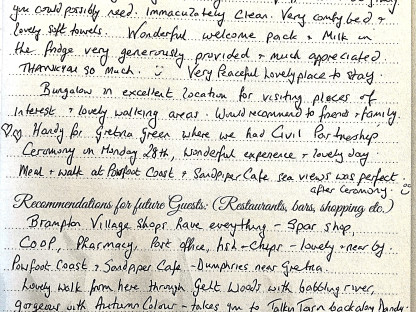 you could possibly need. Immaculately clean. Very comfy bed +
lovely soft towels. Wonderful welcome pack + Milk in
the fridge very generously provided + much appreciated.
THANKYOU so much. Very Peaceful Lovely place to stay.
Bungalow in excellent location for visiting places of
Interest + lovely walking areas. Would recommend to friends + family.
Handy for Gretna Green where we had Civil Partnership
Ceremony on Monday 28th, Wonderful experience + lovely day
Meal + walk at Powfoot Coast + Sandpiper Cafe sea views was perfect
after Ceremony.
Recommendations for future Guests: (Restaurants, bars, shopping etc.)
Brampton Village Shops have everything - Spar shop,
CO.OP, Pharmacy, Post office, fish + Chips - lovely + near by
Powfoot Coast + Sandpiper Cafe - Dumphries near Gretna.
Lovely walk from here through Gelt Woods with babbling river,
gorgeous with Autumn Colour - takes you to Talkin Tarn back along Dandy